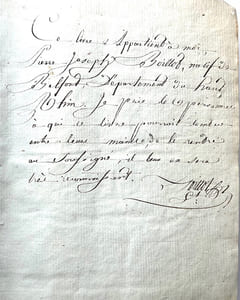 Ce livre Appartient à moi,
Pierre Joseph Boillot, natif de
Belfort, Département du haut
Rhin, Je prie les personnes
à qui ce livre pourroit tomber
entre leurs mains, de le rendre
au Soussigné, il leur en sera
très reconnoissant.
Boillot